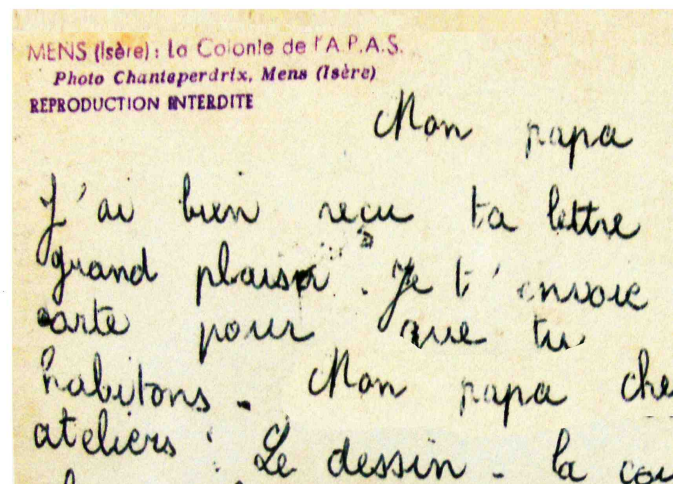 MENS (Isère) : La Colonie de l'A.P.A.S.
Photo Chanteperdrix, Mens (Isère)
REPRODUCTION INTERDITE
Mon papa
J'ai bien reçu ta lettre
grand plaisir. Je t'envoie
carte pour que tu
habitons. Mon papa che
ateliers : Le dessin - la cou